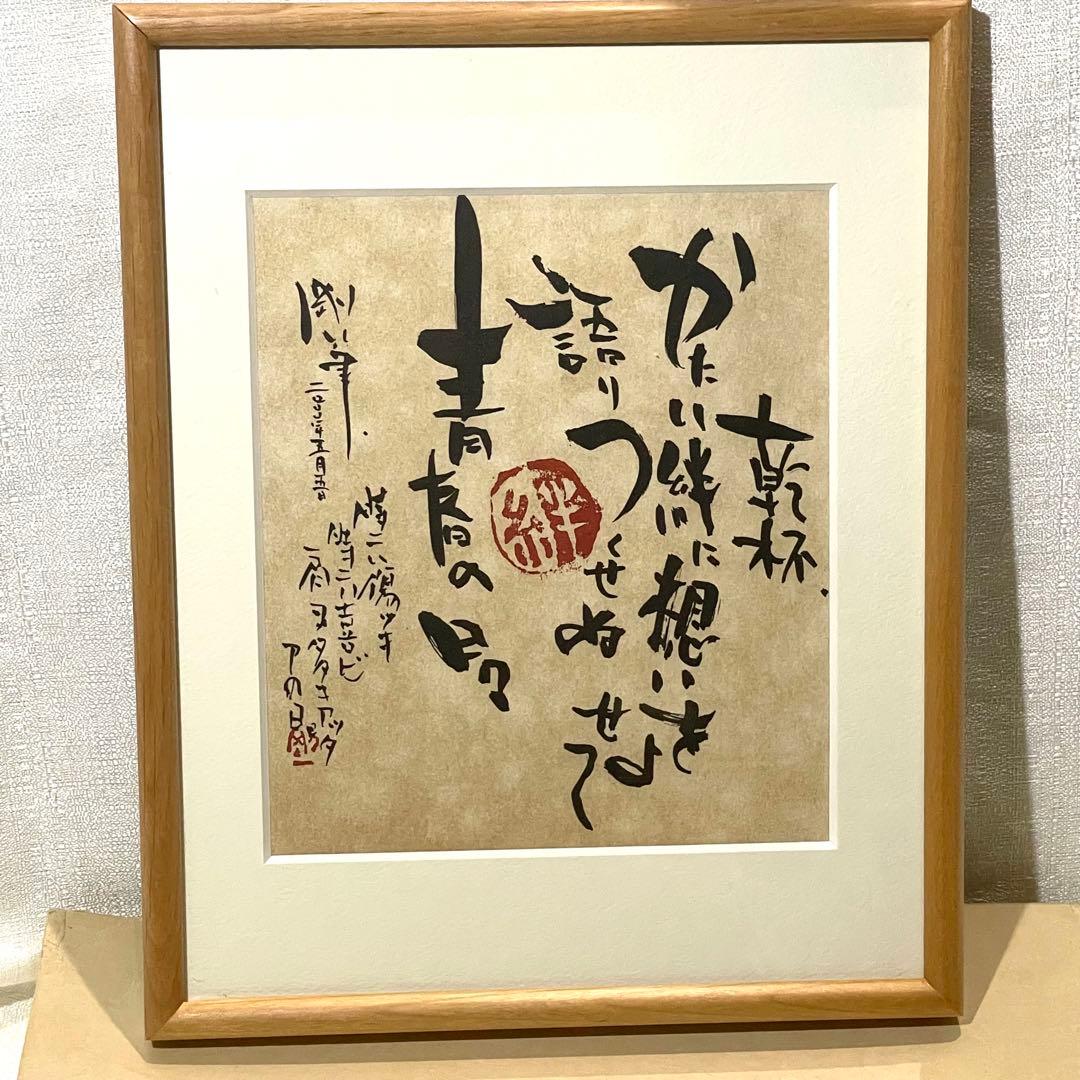 乾杯
かたい絆に想いをよせて
語りつくせぬ
青春の日々
絆
時ニハ傷ツキ
時ニハ喜ビ
肩ヲタタキアッタ
アノ日
剛筆
五月五日